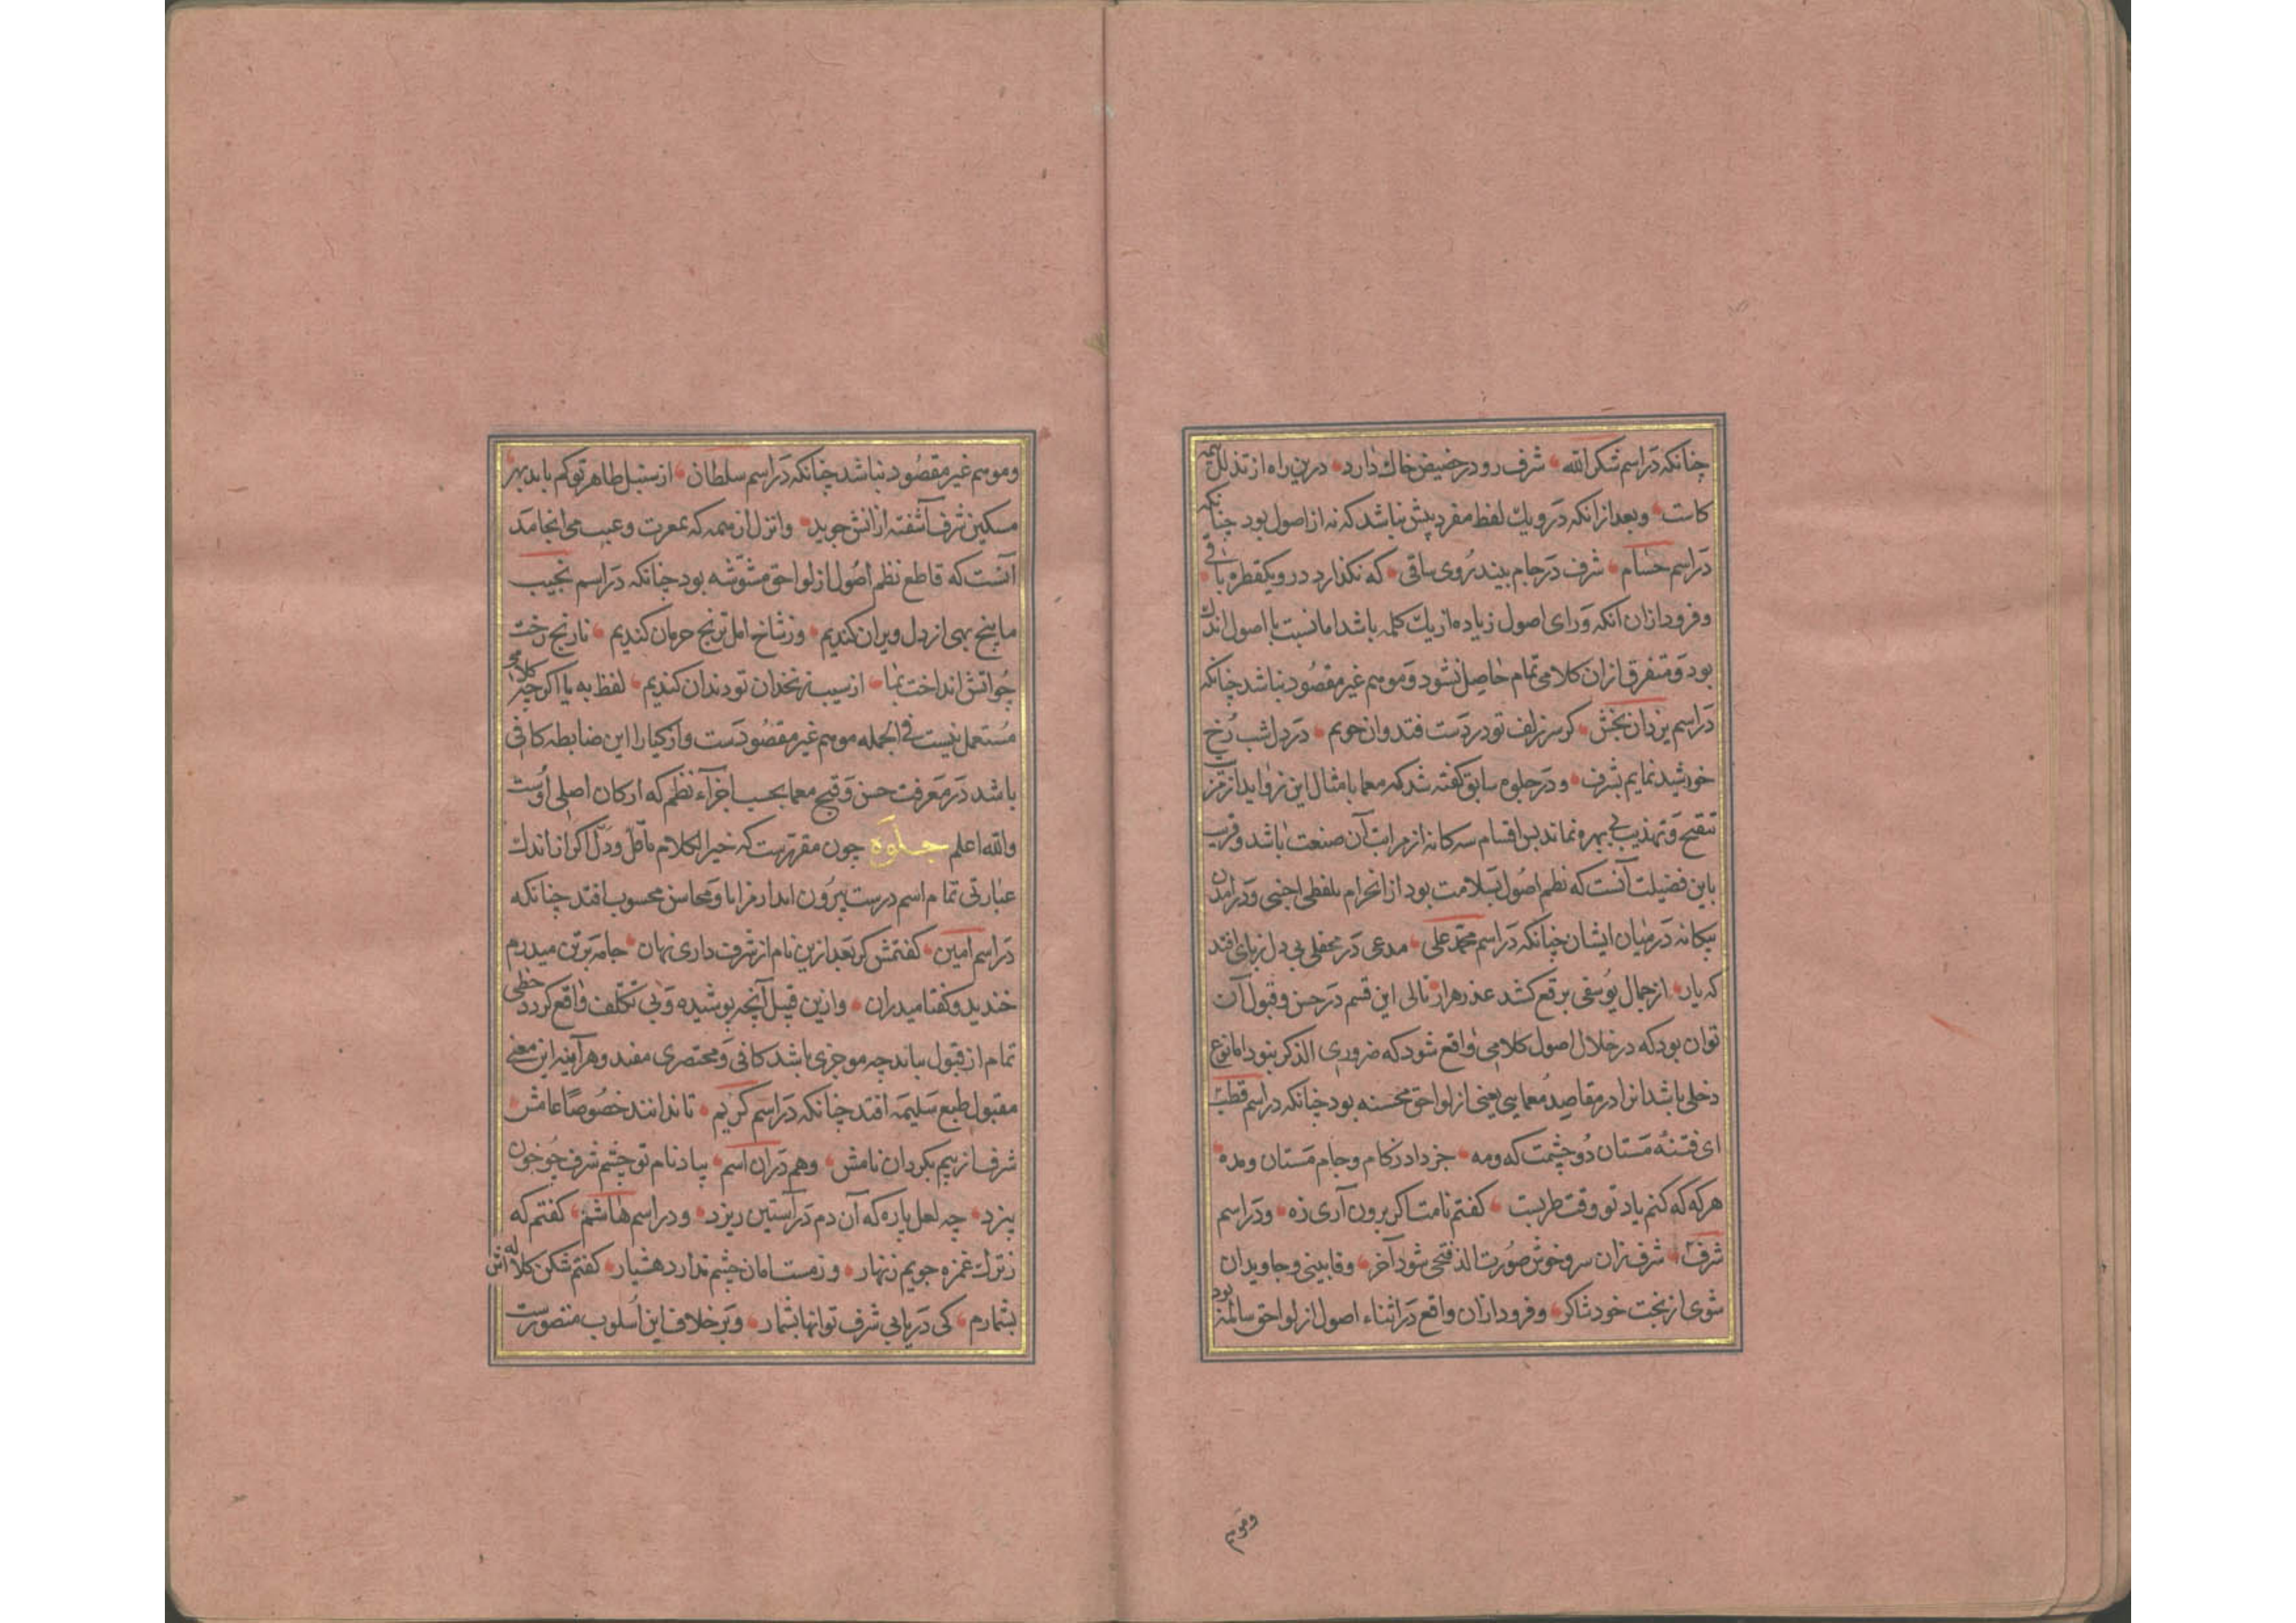 چنانکه در اسم شکرالله شرف رو در حضیض خاک دارد درین راه از تذلل
کاست وبعد از انکه درو یک لفظ مفرد پیش نباشد که نه از اصول بود چنانکه
در اسم حسام شرف در جام بیند روی ساقی که نکذارد درو یکقطره باقی
وفرود ازان انکه ورای اصول زیاده از یک کلمه باشد اما نسبت با اصول اندک
بود ومتفرق ازان کلامی تمام حاصل نشود وموهم غیر مقصود نباشد چنانکه
در اسم یزدان بخش کر سر زلف تو در دست فتد وان جویم در دل شب رخ
خورشید نمایم بشرف ودر جلوه سابق کفته شد که معما بامثال این زواید از
تنقیح وتهذیب بی بهره نماند پس اقسام سه کانه از مراتب آن صنعت باشد وقریب
باین فضیلت آنست که نظم اصول بسلامت بود از انخرام بلفظی اجنبی ودرامدن
بیکانه در میان ایشان چنانکه در اسم محمد علی مدعی در محفلی بی دل زپای افتد
که یار از جمال یوسفی برقع کشد عذرهزار تالی این قسم در حسن وقبول آن
توان بود که در خلال اصول کلامی واقع شود که ضروری الذکر نبود اما نوع
دخلی باشد انرا در مقاصد معمایی یعنی از لواحق محسنه بود چنانکه در اسم قطب
ای فتنه مستان دو چشمت که ومه خز داد زکام وجام مستان ومده
هرکه که کنم یاد تو وقت طربست کفتم نامت اکر برون آری زه ودر اسم
شرف شرف زان سرو خوش صورت الذ فتحی شود آخر وفا بینی وجاویدان
شوی از بخت خود شاکر وفرود ازان واقع در اثناء اصول از لواحق سالمه بود
وموهم
وموهم غیر مقصود نباشد چنانکه در اسم سلطان از سنبل طاهر توکم باید بهر
مسکین شرف آشفته ازانش جوید وانزل از همه که بمعرت وعیب می انجامد
آنست که قاطع نظم اصول از لواحق مشوشه بود چنانکه در اسم نجیب
ما بیخ بهی از دل ویران کندیم وز شاخ امل ترنج حرمان کندیم نارنج رخت
چو اتش انداخت بما از سیب زنخدان تو دندان کندیم لفظ به یا اکرچه
مستعمل نیست فی الجمله موهم غیر مقصودست وازکیا را این ضابطه کافی
باشد در معرفت حسن وقبح معما بحسب اجزاء نظم که ارکان اصلی اوست
والله اعلم جلوه چون مقررست که خیر الکلام ما قل ودل اکر از اندک
عبارتی تمام اسم درست بیرون اید از مزایا ومحاسن محسوب افتد چنانکه
در اسم امین کفتمش کر بعد ازین نام از شرف داری نهان جامه بر تن میدرم
خندید وکفتا میدران وازین قبیل آنچه پوشیده وبی تکلف واقع کردد حظی
تمام از قبول بیابد چه موجزی باشد کافی ومختصری مفید وهرآینه این معنی
مقبول طبع سلیمه افتد چنانکه در اسم کریم تا ندانند خصوصا عامش
شرف از بیم بکرداند نامش وهم دران اسم بیاد نام تو چشم شرف چو خون
بیزد چه لعل پاره که آن دم در آستین ریزد ودر اسم هاشم کفتم که
زترک غمزه جویم زنهار وز مستامان چشم ندارد هشیار کفتم شکن کلاله اش
بشمارم کی دریابی شرف توانها بشمار وبر خلاف این اسلوب متصورست